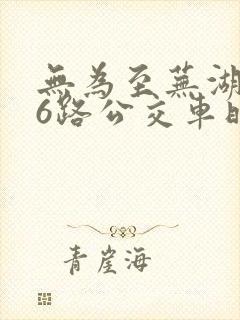 無為至蕪湖
6路公交車時
青崖海